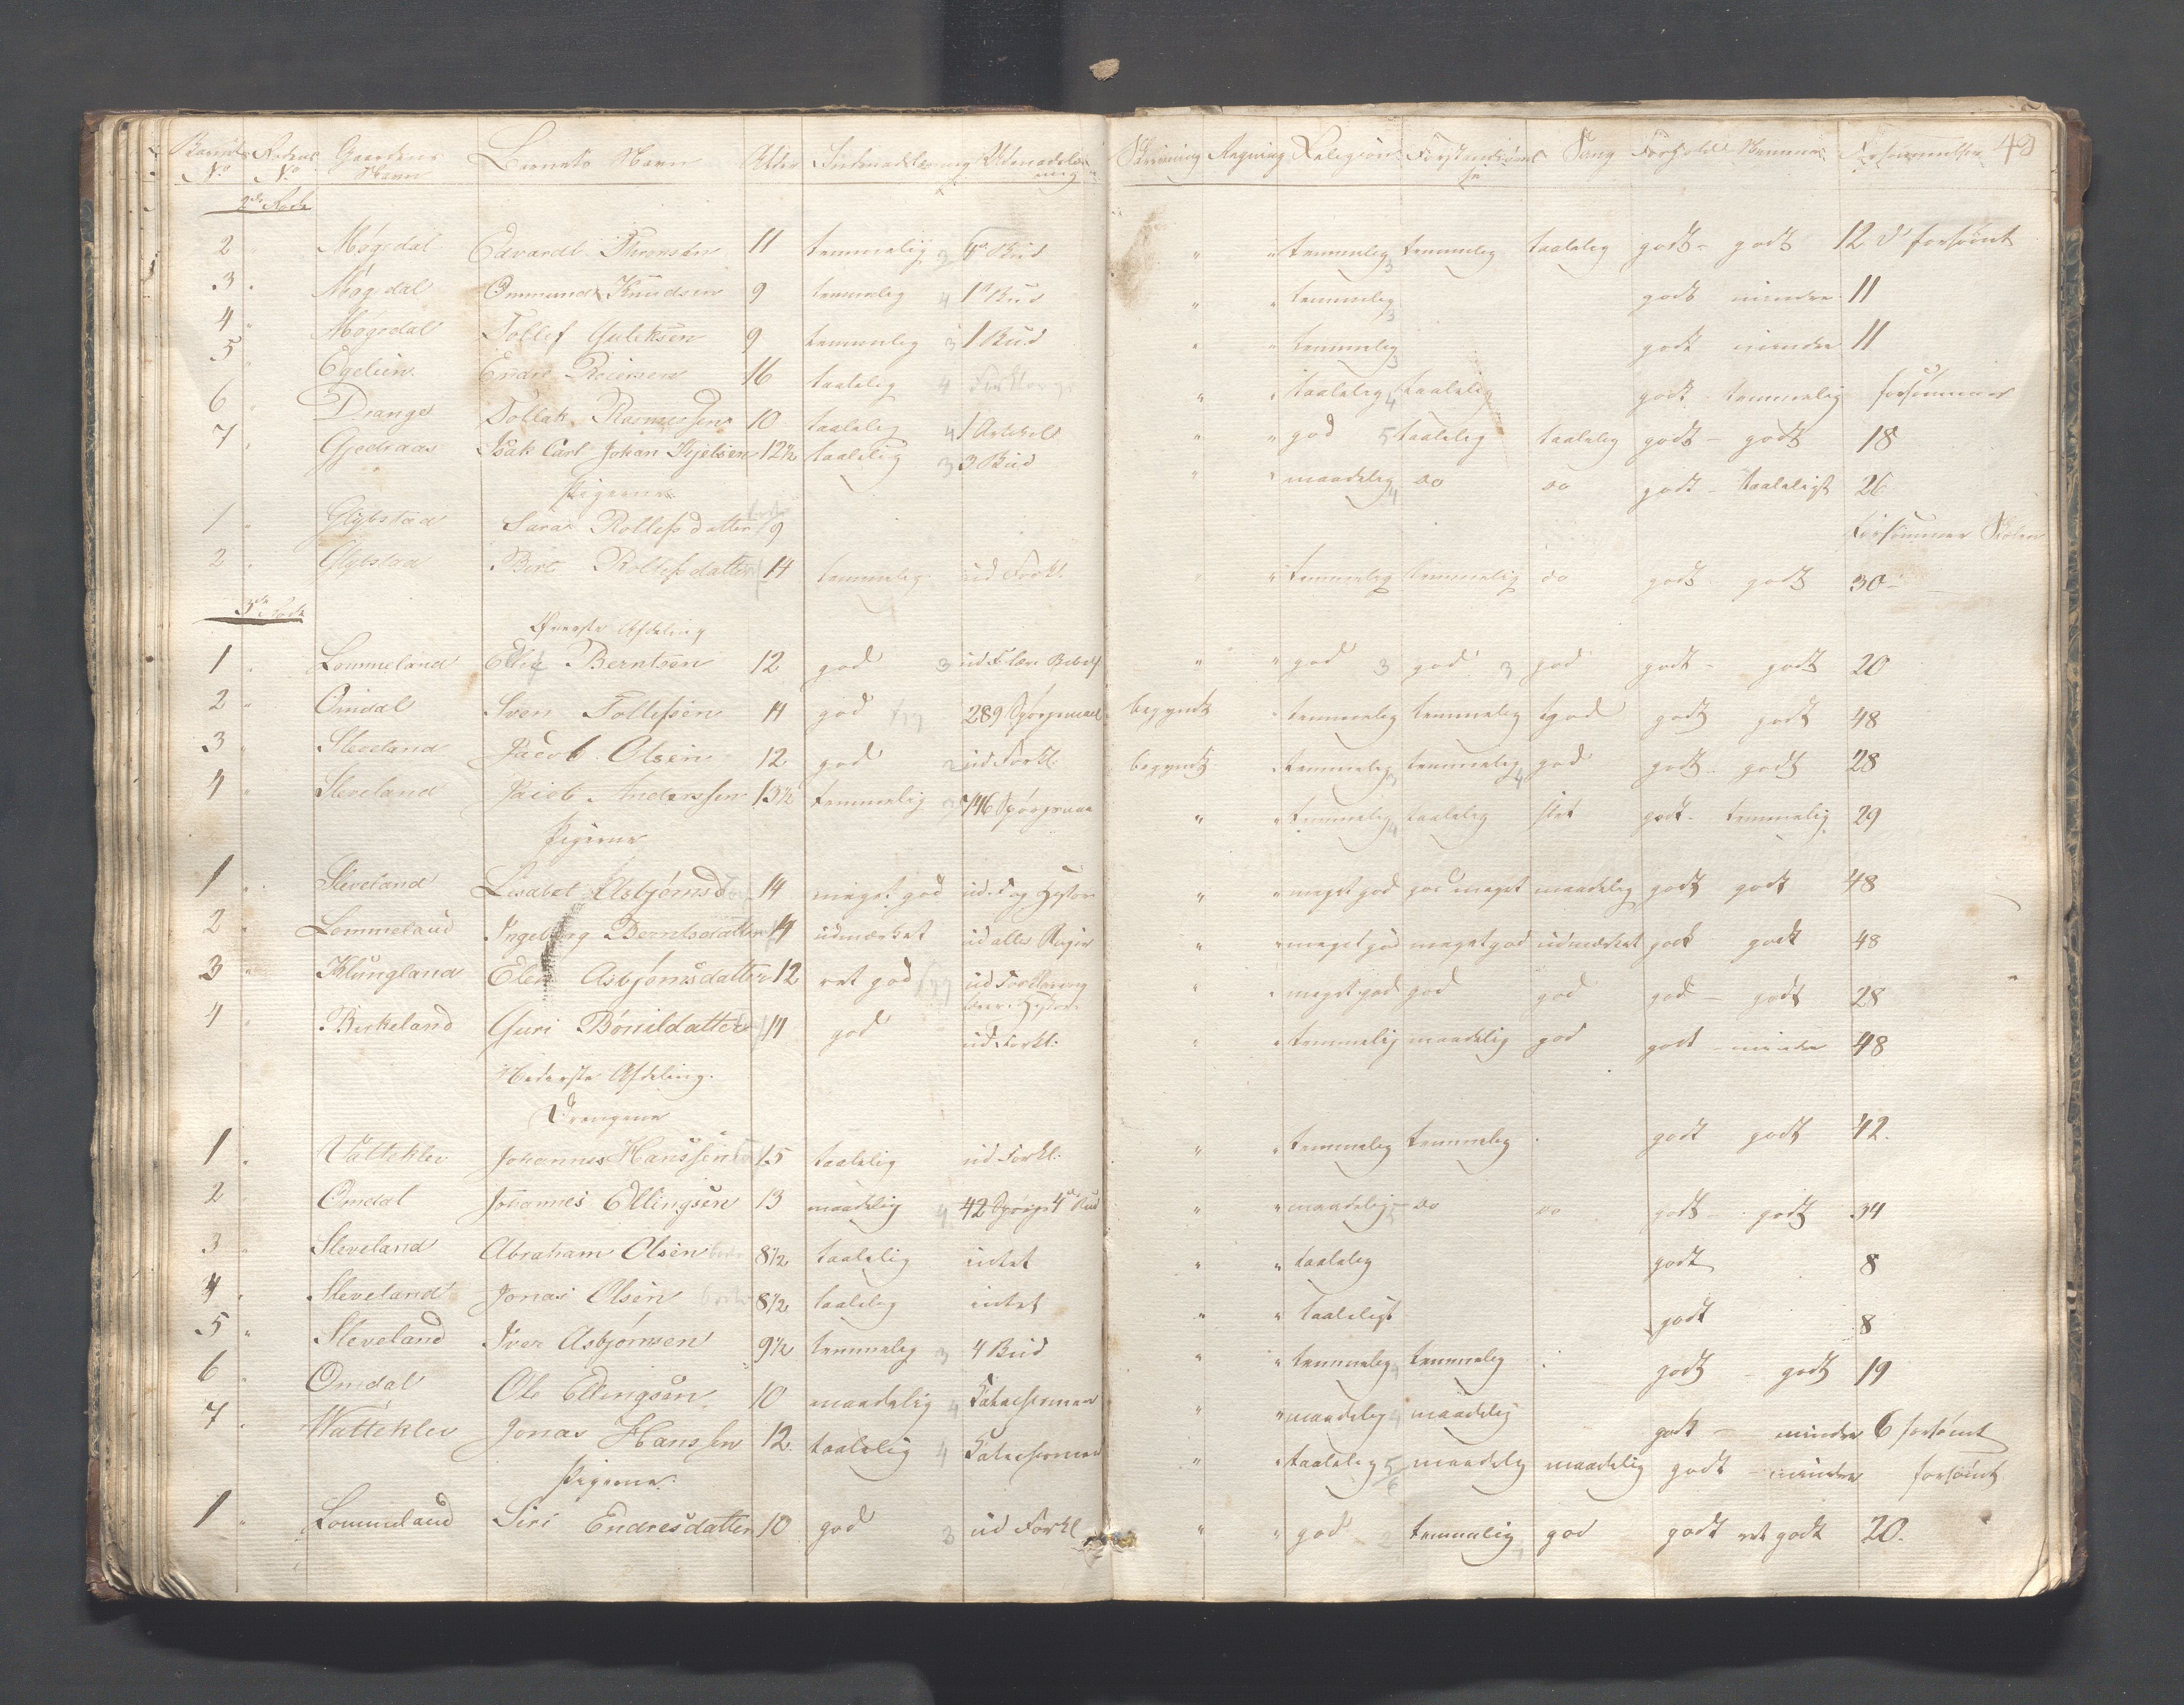 Barnets No Rodens No Gaardens Navn Barnets Navn Alder Indenadslæsning Udenadslæsning Skrivning Regning Religion Forstandsøvelse Sang Forhold Nemme Forsømmelser 49
2de Rode
2 " Møgedal Edvardt Thronsen 11 temmelig 3 4de Bud " " temmelig 3 temmelig taalelig godt - godt 12 d forsømt
3 " Møgedal Ommund Knudsen 9 temmelig 4 1ste Bud " " temmelig 3 godt mindre 11
4 " Møgedal Tollef Guleksen 9 temmelig 3 1 Bud " " temmelig 3 godt mindre 11
5 " Egelien Endre Reiersen 16 taalelig 4 Forklaring " " taalelig 4 taalelig godt temmelig forsømmer
6 " Drange Tollak Rasmussen 10 taalelig 4 1 Artikel " " god 5 taalelig taalelig godt - godt 18
7 " Gjedraas Isak Carl Johan Kjelsen 12½ taalelig 3 3 Bud " " maadelig 4 do do godt - taaleligt 26
Pigerne
1 " Glypstad Sara Rollefsdatter 9 Forsømmer Skolen
2 " Glypstad Berte Rollefsdatter 14 temmelig ud Forkl. " " temmelig temmelig do godt godt 30 -
3de Rode
Øverste Afdeling
1 " Lommeland Ellef Berntsen 12 god 3 ud F. lære Bibelh " " god 3 god 3 god godt - godt 20
2 " Omdal Sven Tollefsen 14 god 289 Spørgsmaal begyndt " temmelig temmelig god godt godt 48
3 " Sleveland Jacob Olsen 12 god 2 ud Forkl. begyndt " temmelig temmelig 4 god godt - godt 28
4 " Sleveland Jacob Anderssen 13½ temmelig 3 746 Spørgsmaa " " temmelig 4 taalelig slet godt - temmelig 29
Pigerne
1 " Sleveland Lisabet Asbjørnsd 14 meget god ud. F og Hystor " " meget god god meget maadelig godt godt 48
2 " Lommeland Ingeborg Berntsdatter 14 udmærket ud alle Bøger " " meget god meget god udmærket godt godt 48
3 " Klungland Elen Asbjørnsdatter 12 ret god ud Forklaring " " meget god god god god - godt 28
lærer Hystor
4 " Birkeland Guri Bønildatter 14 god ud Forkl. " " temmelig maadelig god godt - mindre 48
Nederste Afdeling.
Drengene
1 " Vatteklev Johannes Hanssen 15 taalelig ud Forkl. " " temmelig temmelig " godt godt 42.
2 " Omdal Johannes Ellingsen 13 maadelig 4 42 Spørgs 4de Bud " " maadelig 5 do do godt - godt 34
3 " Sleveland Abraham Olsen borte 8½ taalelig intet " " taalelig godt 8
4 " Sleveland Jonas Olsen borte 8½ taalelig intet " " taaleligt godt 8
5 " Sleveland Iver Asbjørnsen 9½ temmelig 3 4 Bud " " temmelig 4 temmelig " godt - godt 19
6 " Omdal Ole Ellingsen 10 maadelig 4 Katachismen " " maadelig 4 maadelig godt - mindre 6 forsømt
7 " Watteklev Jonas Hanssen 12 taalelig 4 Katachismen " " taalelig 5 maadelig maadelig godt - mindre forsømt
6
Pigerne.
1 " Lommeland Siri Endresdatter 10 god 3 ud Forkl " " god 2 temmelig god godt ret godt 20.